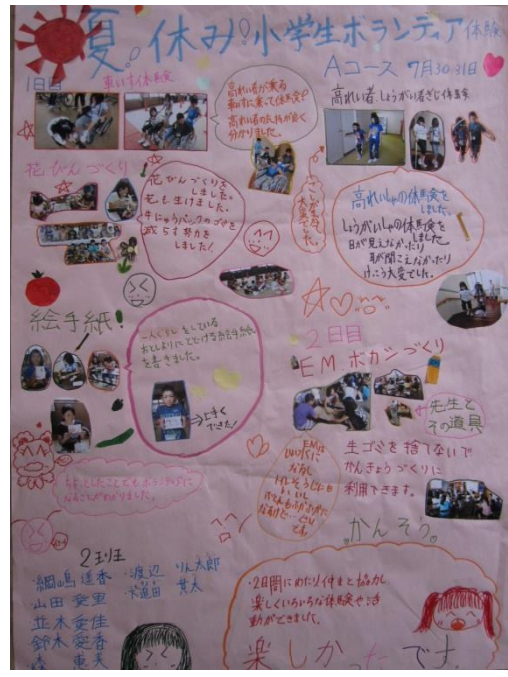 夏。休み!小学生ボランティア体験
Aコース 7月30.31日
1日目
車いす体験
高れい者が乗る
車いすに乗って体験!
高れい者の気持が良く
分かりました。
高れい者、しょうがい者ぎじ体験
花びんづくり
花びんづくりを
しました。
花も生けました。
牛にゅうパックのゴミを
減らす努力を
しました!
大変でした。
高れいしゃの体験を
しました。
しょうがいしゃの体験を
しました
目が見えなかったり
耳が聞こえなかったり
けっこう大変でした。
絵手紙!
一人ぐらしをしている
おとしよりにとどける絵手紙
を書きました。
→上手く
できた!
2日目
EMボカシづくり
先生と
その道具
生ゴミを捨てないで
かんきょうづくりに
利用できます。
EMは
ちょっとしたことでもボランティアに
なることがわかりました。
かんそう。
2班
山田愛里
並木愛佳
鈴木愛香
森 恵美
渡辺 りん太郎
・2日間にわたり仲まと協力し
楽しくいろいろな体験や活
動ができました。
楽しかったです。